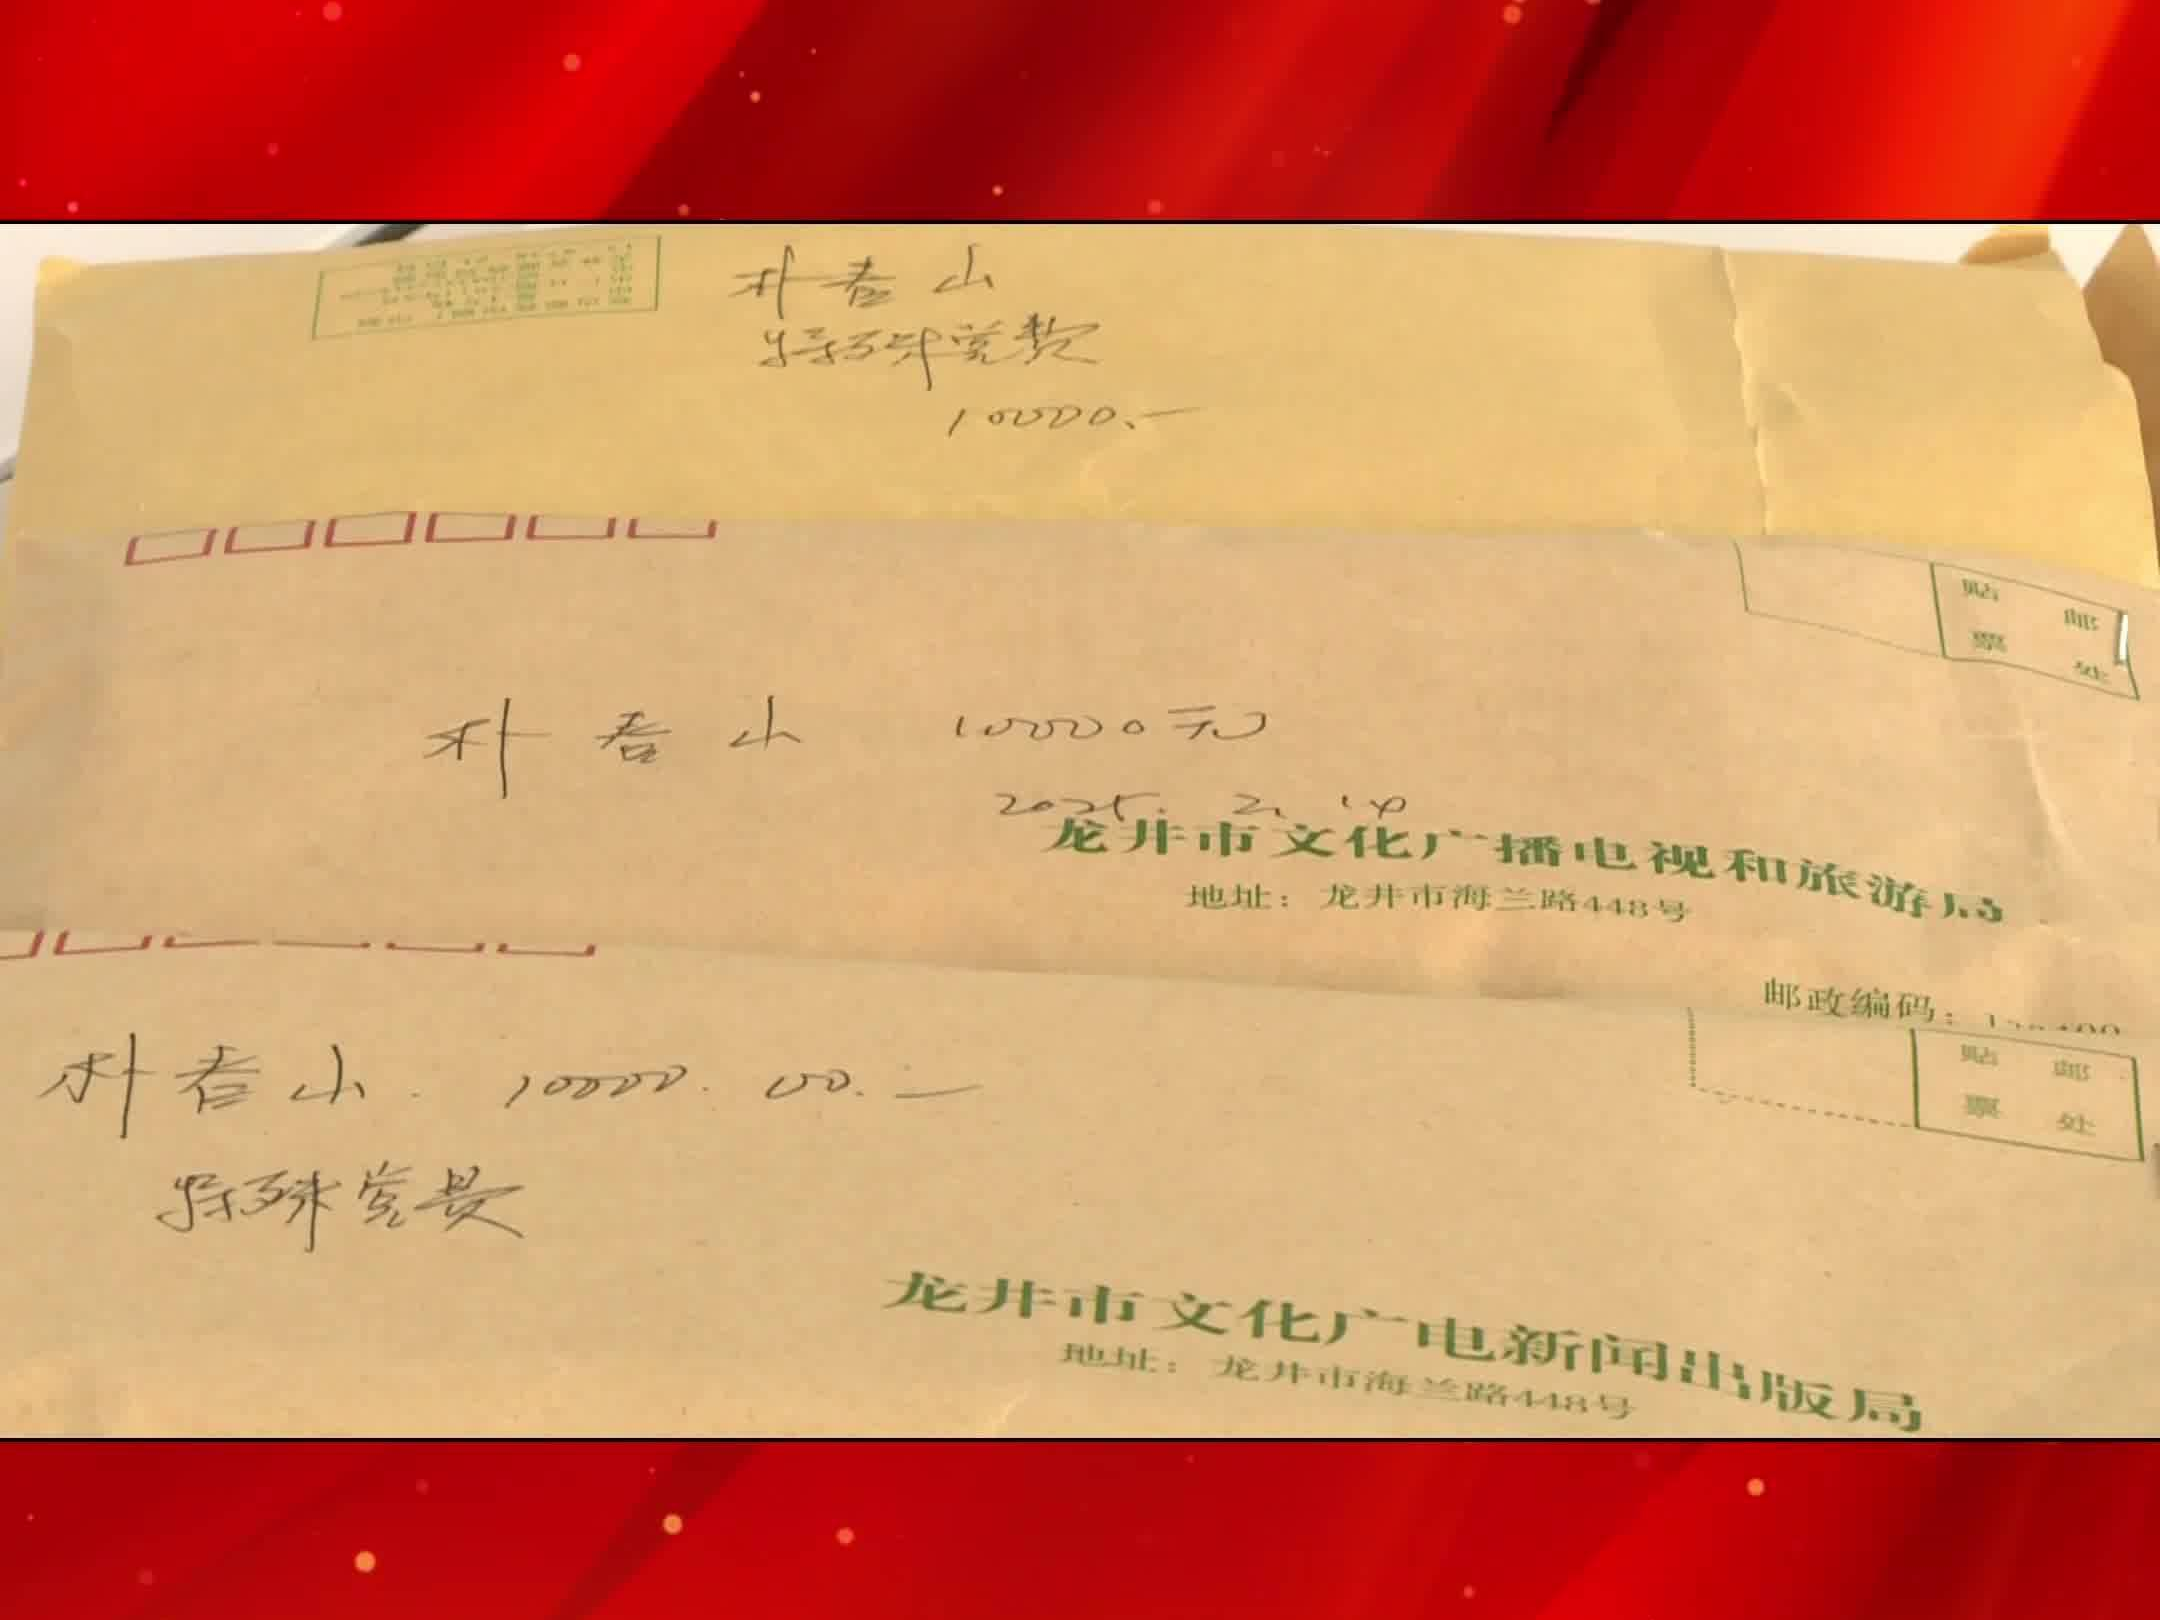 朴春山
特殊党费
10000.—
贴 邮
票 处
朴春山 10000元
2025. 2. 14
龙井市文化广播电视和旅游局
地址：龙井市海兰路448号
邮政编码：
贴 邮
票 处
朴春山. 10000.00.—
特殊党费
龙井市文化广电新闻出版局
地址：龙井市海兰路448号